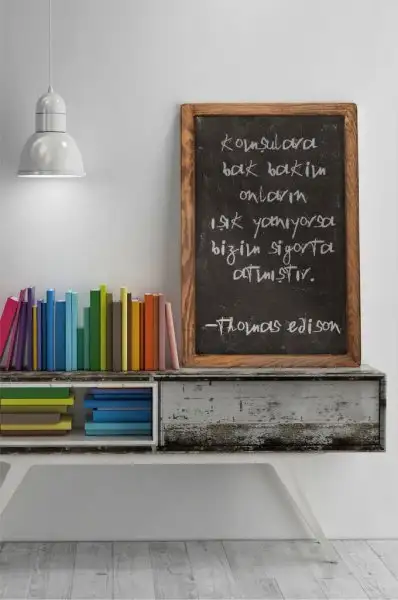 komşulara
bak bakim
onların
ışık yanıyorsa
bizim sigorta
atmıştır.
-Thomas edison